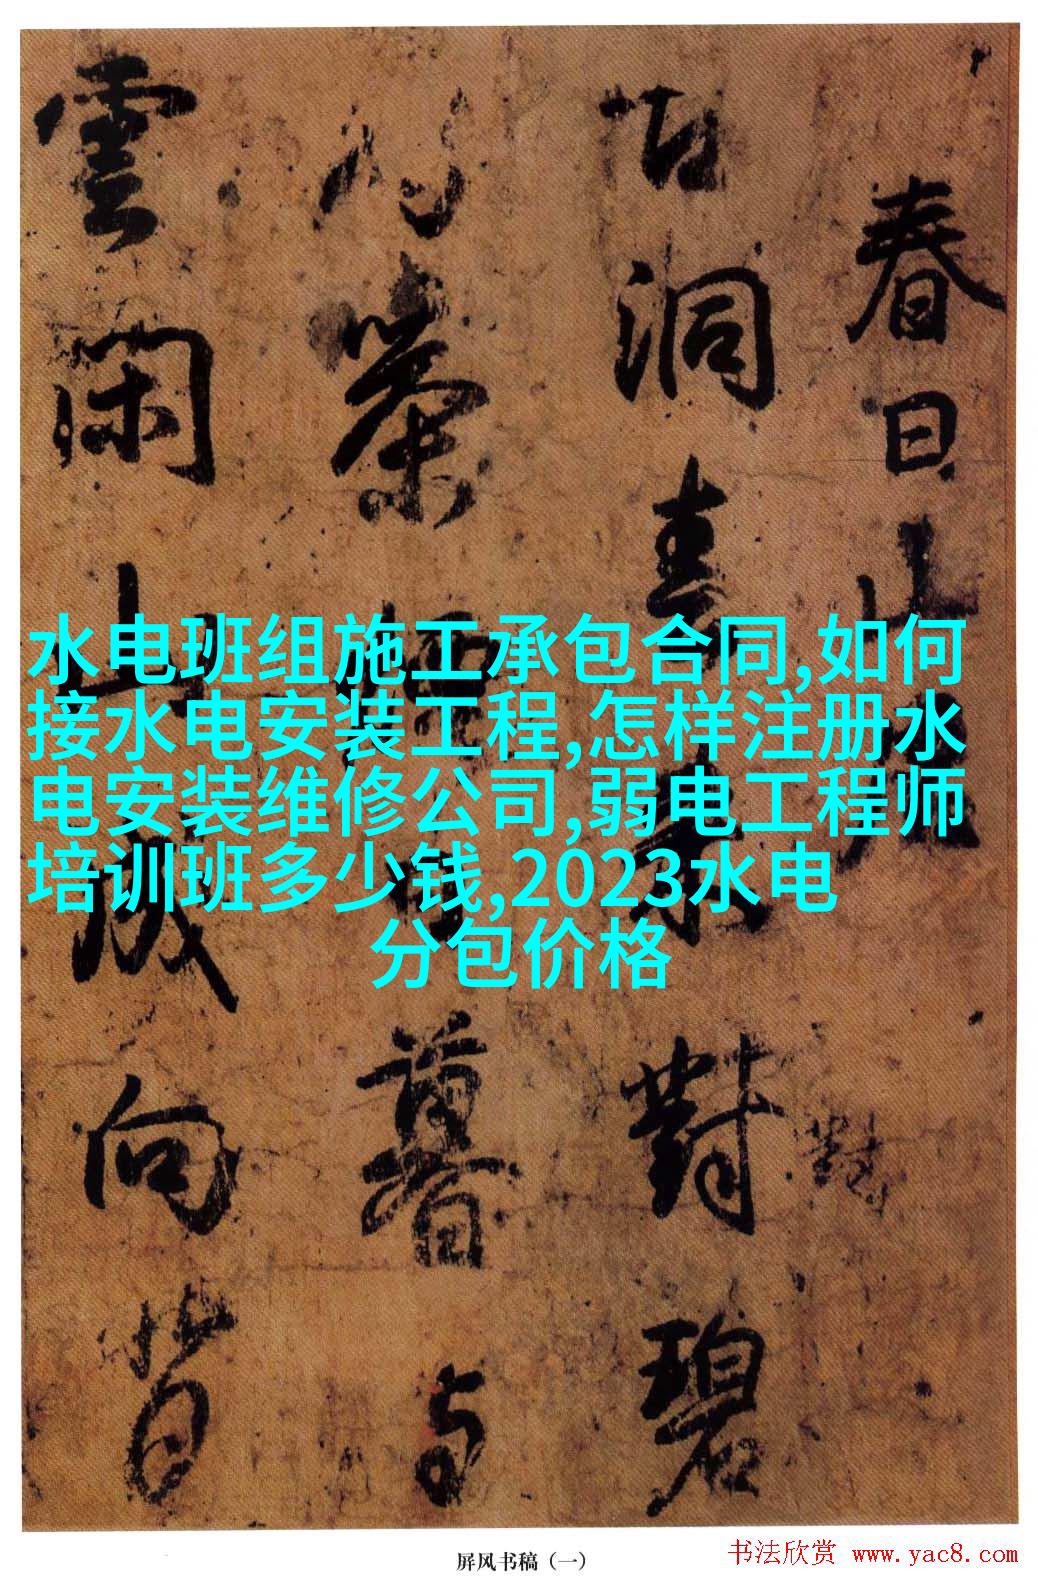 春日山
古洞春對碧
對
灣茶暮與
雲閑山成向背
水电班组施工承包合同,如何
接水电安装工程,怎样注册水
电安装维修公司,弱电工程师
培训班多少钱,2023水电
分包价格
屏风书稿（一）
书法欣赏 www.yac8.com